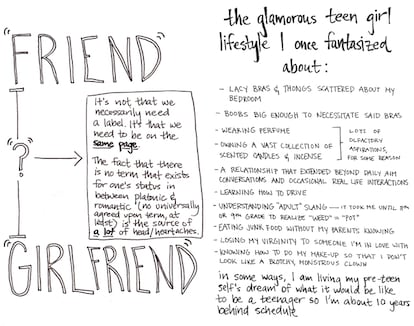 "FRIEND"
"?"
It's not that we
necessarily need
a label. It's that we
need to be on the
same page.
The fact that there
is no term that exists
for one's status in
between platonic &
romantic (no universally
agreed upon term, at
least) is the source of
a lot of head/heartaches.
"GIRLFRIEND"
the glamorous teen girl
lifestyle I once fantasized
about:
- LACY BRAS & THONGS SCATTERED ABOUT MY
BEDROOM
- BOOBS BIG ENOUGH TO NECESSITATE SAID BRAS
- WEARING PERFUME
- OWNING A VAST COLLECTION OF
SCENTED CANDLES & INCENSE
LOTS OF
OLFACTORY
ASPIRATIONS,
FOR SOME REASON
- A RELATIONSHIP THAT EXTENDED BEYOND DAILY AIM
CONVERSATIONS AND OCCASIONAL REAL LIFE INTERACTIONS
- LEARNING HOW TO DRIVE
- UNDERSTANDING "ADULT" SLANG — IT TOOK ME UNTIL 8TH
OR 9TH GRADE TO REALIZE "WEED" = "POT"
- EATING JUNK FOOD WITHOUT MY PARENTS KNOWING
- LOSING MY VIRGINITY TO SOMEONE I'M IN LOVE WITH
- KNOWING HOW TO DO MY MAKE-UP SO THAT I DON'T
LOOK LIKE A BLOTCHY, MONSTROUS CLOWN
in some ways, I am living my pre-teen
self's dream of what it would be like
to be a teenager so I'm about 10 years
behind schedule